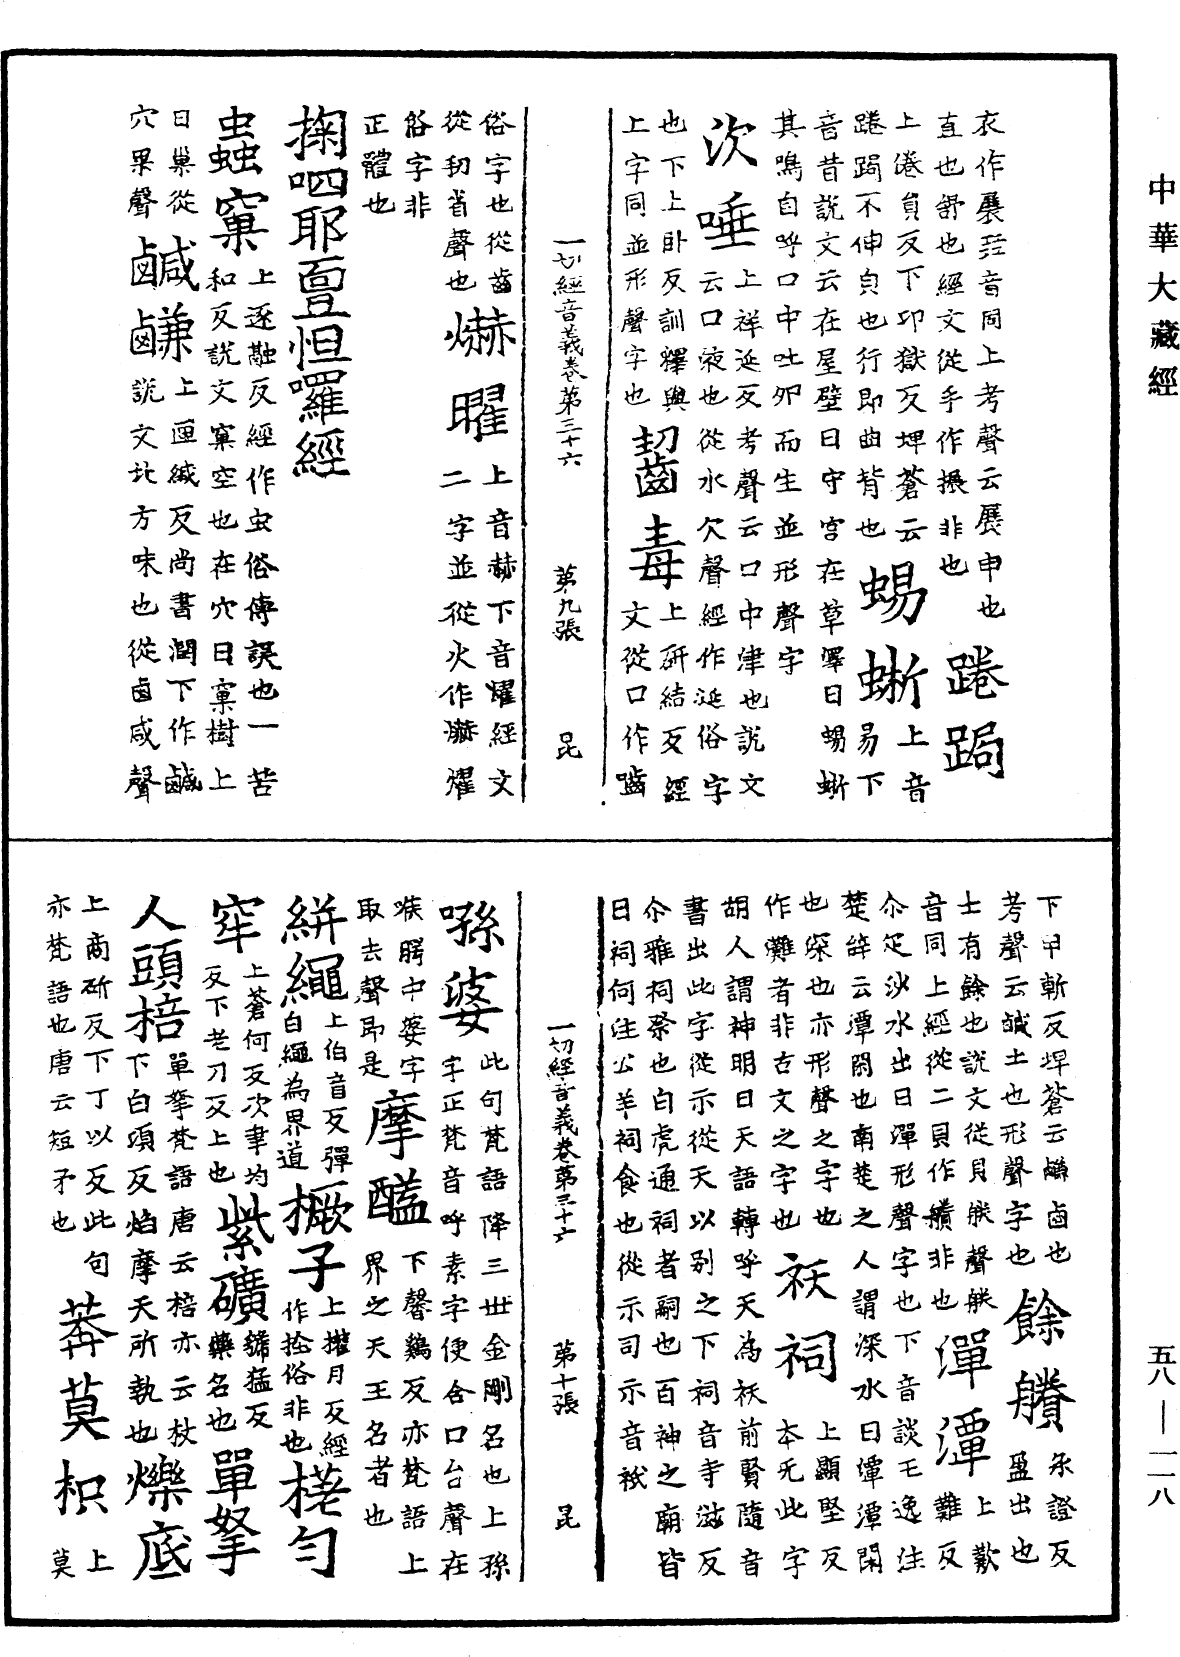 中華大藏經
衣作展㠭音同上考聲云展申也
直也舒也經文從手作搌非也 踡跼
上倦負反下邛獄反埤蒼云
踡跼不伸皃也行即曲背也 蜴蜥 上音易下
音昔說文云在屋壁曰守宮在草澤曰蜴蜥
其鳴自呼口中吐卵而生並形聲字
次唾 上祥延反考聲云口中津也說文
云口液也從水欠聲經作涎俗字
也下土卧反訓釋與
上字同並形聲字也 齧毒 上研結反經
文從口作嚙
一切經音義卷第三十六 第九張 昆
俗字也從齒
從㓞省聲也 爀曜 上音赫下音燿經文
二字並從火作爀燿
俗字非
正體也
掬呬耶亶怛囉經
蟲窠 上逐融反經作虫俗傳誤也一苦
和反說文窠空也在穴曰窠樹上
曰巢從
穴果聲 鹹鹻 上匣緘反尚書潤下作鹹
說文北方味也從鹵咸聲
下甲斬反埤蒼云鹻鹵也
考聲云鹹土也形聲字也 餘賸 承證反
盈出也
士有餘也說文從貝朕聲朕
音同上經從二貝作䞉非也 潬潭 上歎
難反
尒疋沙水出曰潬形聲字也下音談王逸注
楚辝云潭閑也南楚之人謂深水曰潭潭閑
也深也亦形聲之字也
作灘者非古文之字也 祆祠 上顯堅反
本无此字
胡人謂神明曰天語轉呼天為祆前賢隨音
書出此字從示從天以别之下祠音寺滋反
尒雅祠祭也白虎通祠者嗣也百神之廟皆
曰祠何注公羊祠食也從示司示音祇
一切經音義卷第三十六 第十張 昆
㗸婆 此句梵語降三世金剛名也上孫
字正梵音呼素字便合口台聲在
喉腭中婆字
取去聲即是 摩醯 下馨鷄反亦梵語上
界之天王名者也
絣繩 上伯音反彈
白繩為界道 橛子 上㩴月反經
作拴俗非也 㧯勻
上蒼何反次聿均
反下老刀反上也 牢 紫礦 號猛反
藥名也 單拏
人頭棓 單拏梵語唐云棓亦云杖
下白項反焰摩天所執也 爍底
上商斫反下丁以反此句
亦梵語也唐云短矛也 莽莫枳 上
莫
五八—一一八